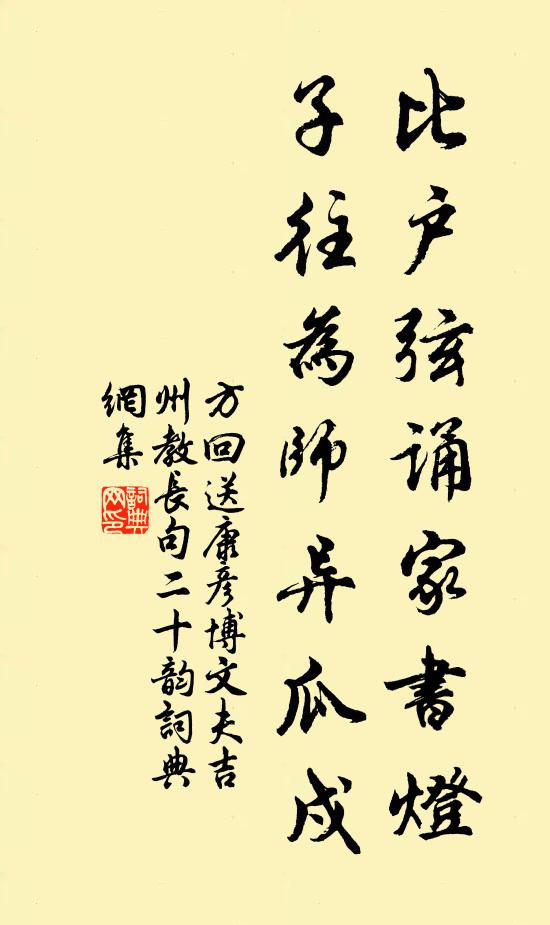 比户弦诵家書燈
子往為師异瓜戍
方回送康彦博文夫吉
州教長句二十韵詞典
網集
詞典
网印